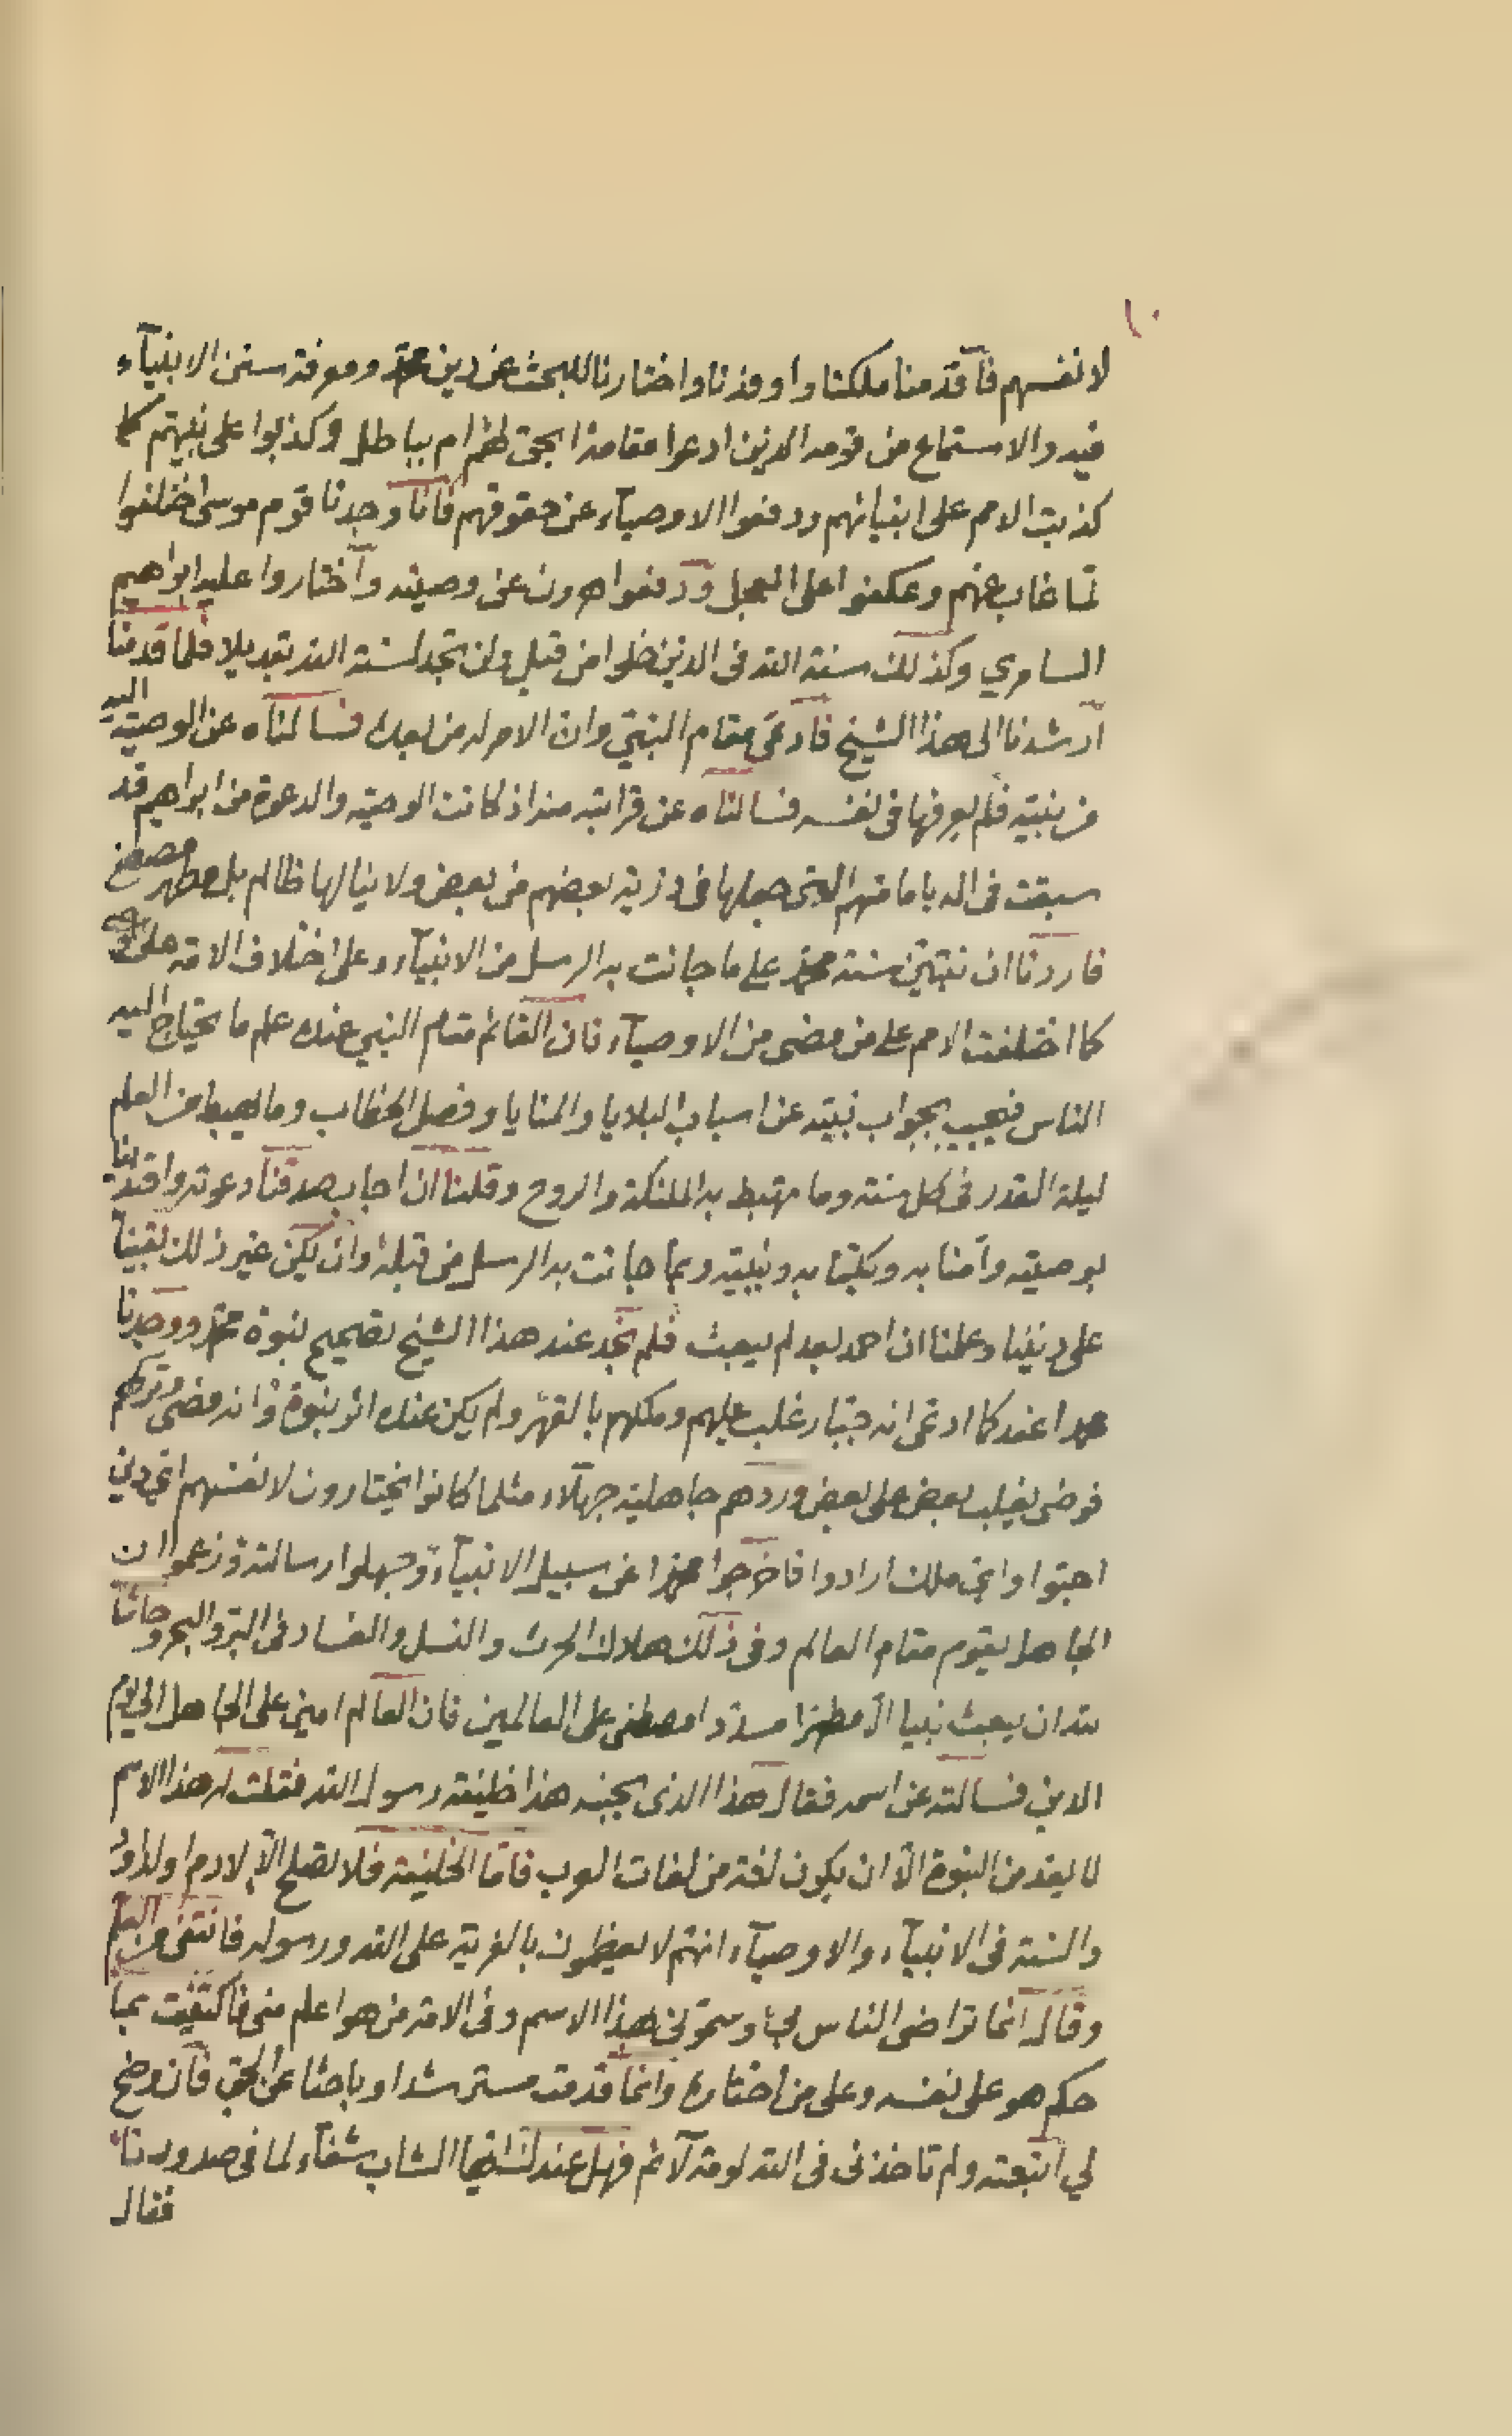 ١٠
لانفسهم فاقدمنا ملكنا واوفدنا واختارنا للبحث عن دين محمد ومعرفة سنن الانبيآء
فيه والاستماع من قومه الذين ادعوا مقامه ابحق لهم ام بباطل وكذبوا على نبيهم كما
كذبت الامم على انبيائهم ودفعوا الاوصيآء عن حقوقهم فانا وجدنا قوم موسى اختلفوا
لما غاب عنهم وعكفوا على العجل ودفعوا هرون عن وصيته واختاروا عليه ابراهيم
السامري وكذلك سنة الله في الذين خلوا من قبل ولن تجد لسنة الله تبديلا فلما قدمنا
ارشدنا الى هذا الشيخ فادعى مقام النبي وان الامر له من بعده فسالناه عن الوصية اليه
من نبيه فلم يعرفها في نفسه فسالناه عن قرابته منه اذ كانت الوصية والدعوة من ابراهيم قد
سبقت في اله بامامتهم التي جعلها في ذرية بعضهم من بعض ولا ينالها ظالم بل مطهر مصطفى
فاردنا ان نتبين سنة محمد على ما جائت به الرسل من الانبيآء وعلى اختلاف الامة على وصيه
كما اختلفت الامم على من مضى من الاوصيآء فان القائم مقام النبي عنده علم ما يحتاج اليه
الناس فيجيب بجواب نبيه عن اسباب البلايا والمنايا وفصل الخطاب وما يهبط من العلم
ليلة القدر في كل سنة وما يهبط به الملئكة والروح وقلنا ان اجاب صدقنا دعوته واقتدينا
بوصيته وآمنا به وبكتابه ونبيه وبما جائت به الرسل من قبله وان يكن غير ذلك بقينا
على ديننا وعلمنا ان احمد بعد لم يبعث فلم نجد عند هذا الشيخ تصحيح نبوة محمد ووجدنا
محمدا عنده كما ادعى انه جبار غلب عليهم وملكهم بالقهر ولم يكن عنده اثر نبوة وانه مضى وتركهم
فوضى يغلب بعض على بعض وردهم جاهلية جهلاء مثلما كانوا يختارون لانفسهم اي دين
احبوا واي ملك ارادوا فاخرجوا محمدا عن سبيل الانبيآء وجهلوا رسالته وزعموا ان
الجاهل يقوم مقام العالم وفي ذلك هلاك الحرث والنسل والفساد في البر والبحر وحاشا
لله ان يبعث نبيا الا مطهرا مسددا مصطفى على العالمين فان العالم امين على الجاهل الى يوم
الدين فسالته عن اسمه فقال هذا الذي بجنبه هذا خليفة رسول الله فقلت له هذا الاسم
لا يعد من النبوة الا ان يكون لغة من لغات العرب فاما الخليفة فلا تصلح الا لادم اولداود
والسنة في الانبيآء والاوصيآء انهم لا يعظمون بالفرية على الله ورسوله فانتفى من العلم
وقال انما تراضى الناس بي وسموني بهذا الاسم وفي الامة من هو اعلم مني فاكتفيت بما
حكم هو على نفسه وعلى من اختاره وانما قدمت مسترشدا وباحثا عن الحق فان وضح
لي اتبعته ولم تاخذني في الله لومة لآئم فهل عندك ايها الشاب شفآء لما في صدورنا
فقال